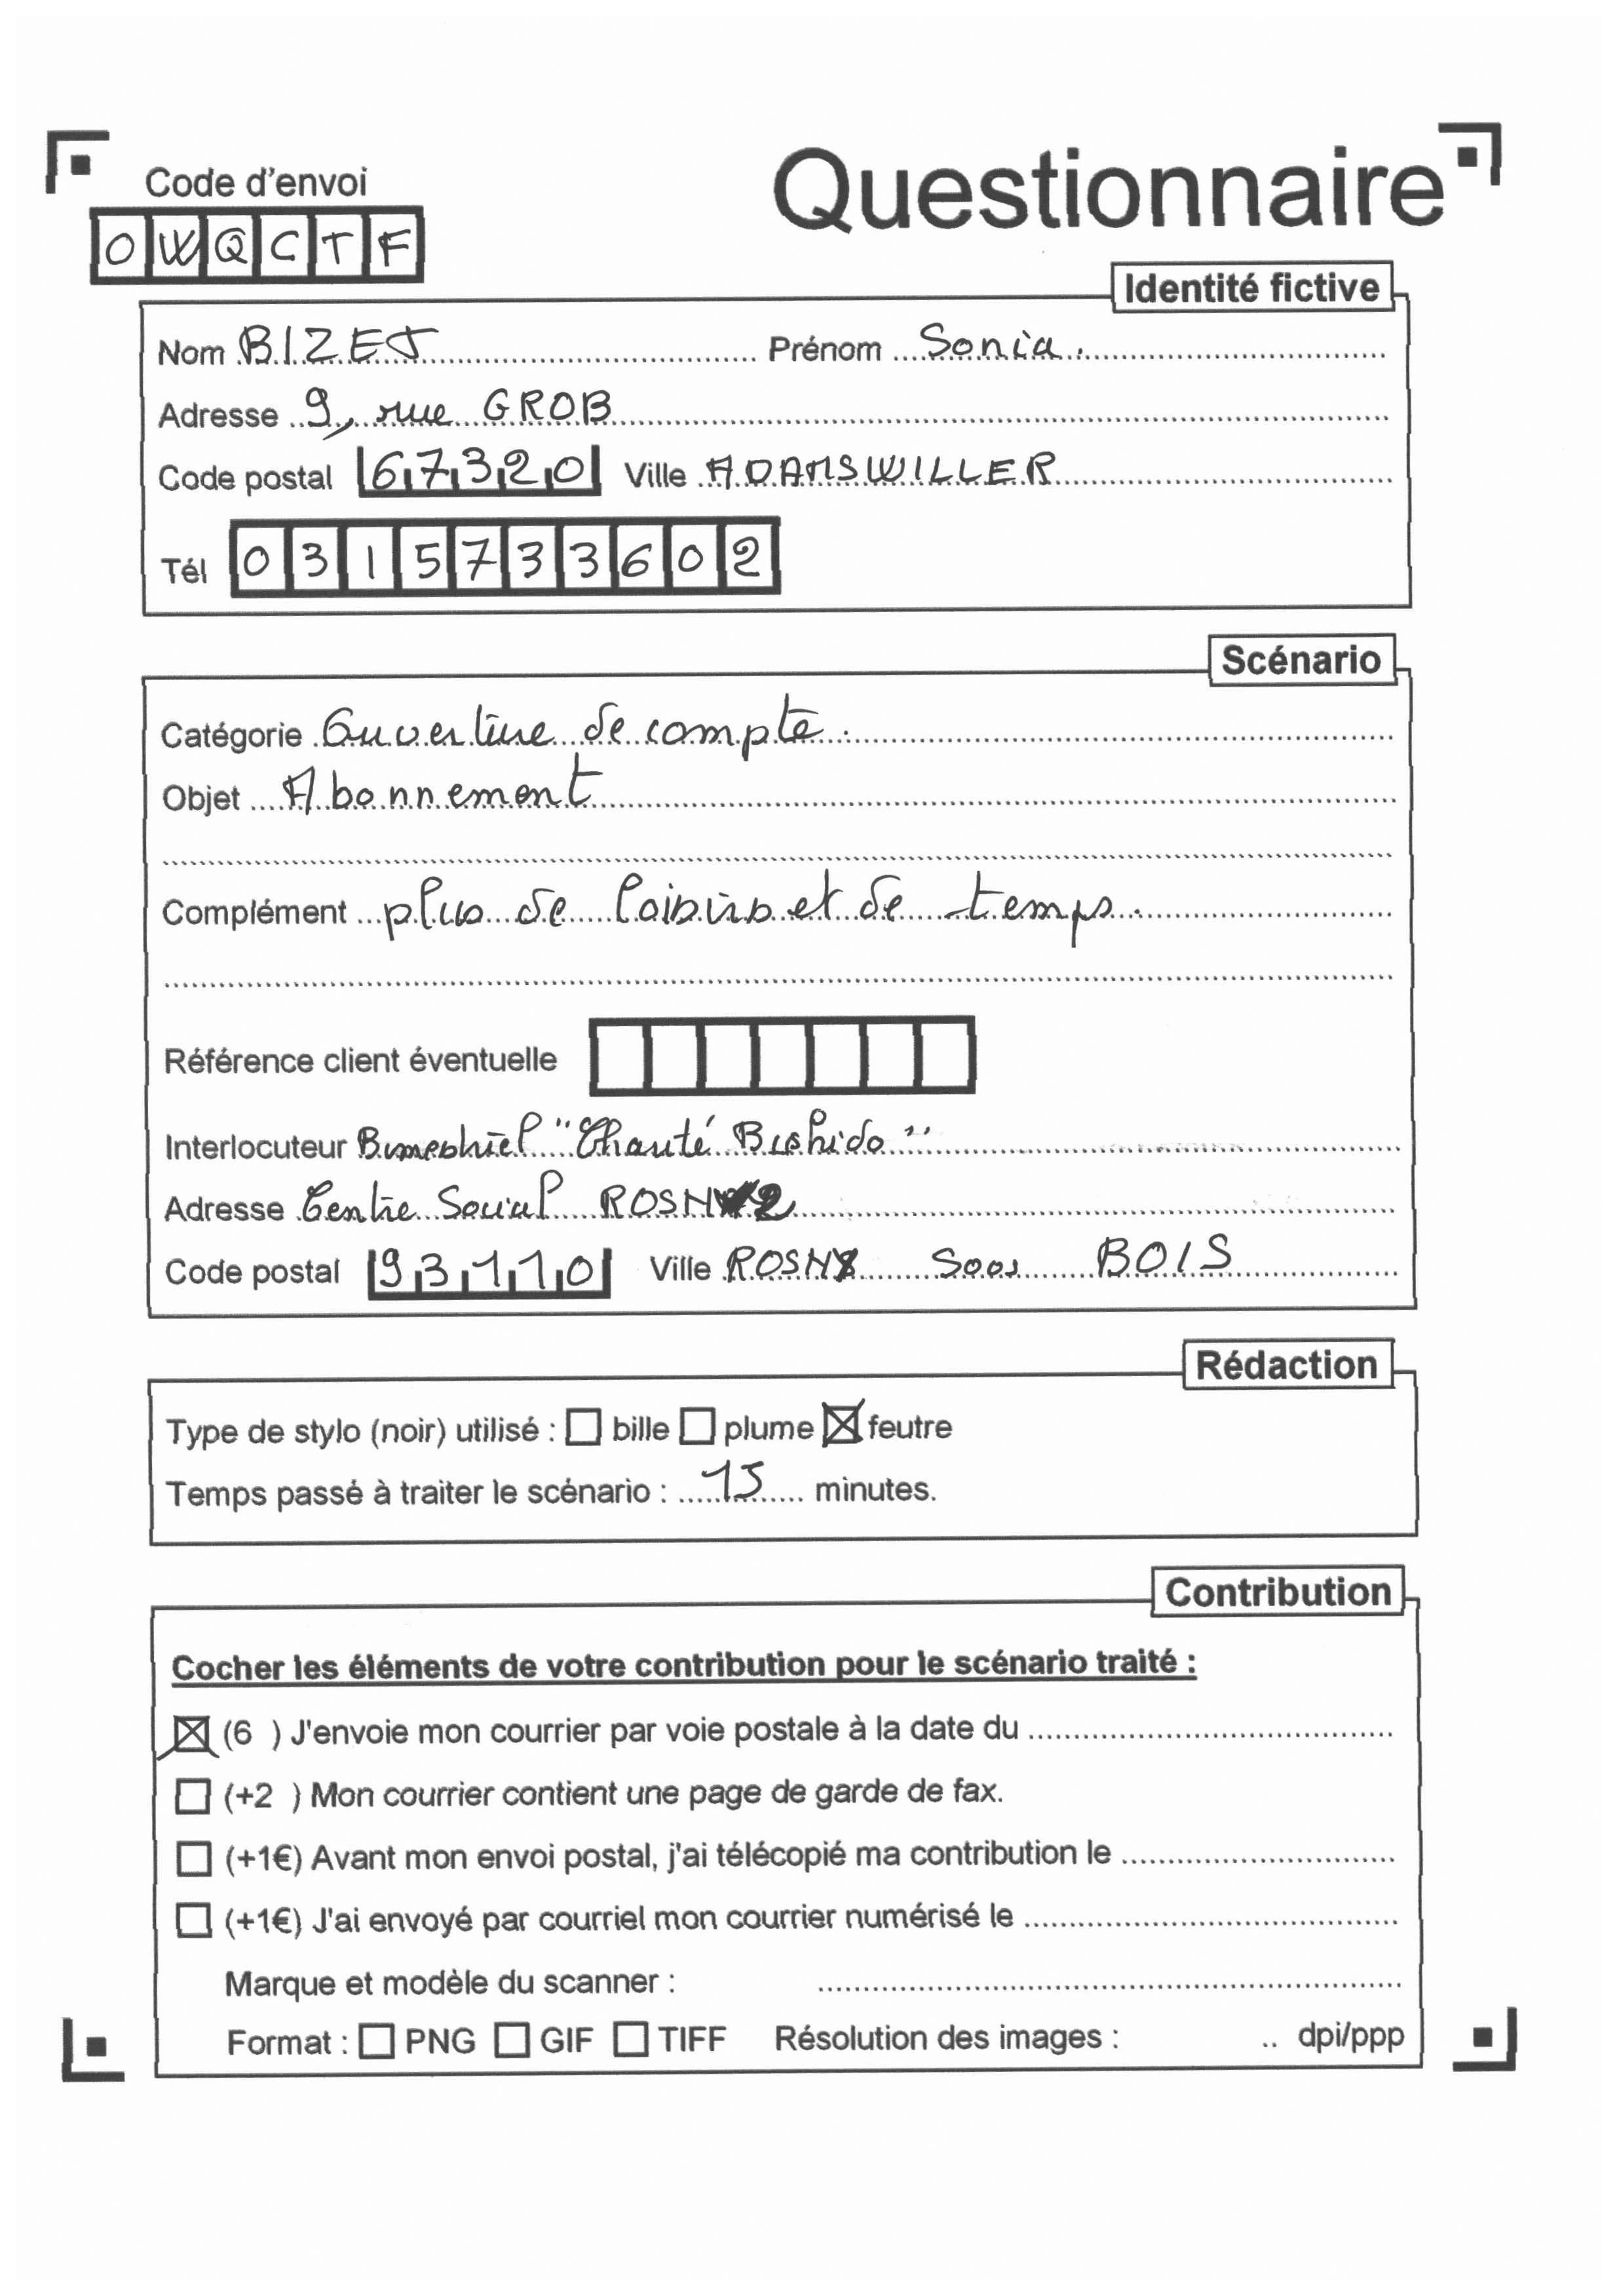 Questionnaire
Code d'envoi
OWQCTF
Identité fictive
Nom BIZET Prénom Sonia.
Adresse 9, rue GROB
Code postal 67320 Ville ADAMSWILLER
Tél 0315733602
Scénario
Catégorie Ouverture de compte.
Objet Abonnement
Complément plus de loisirs et de temps.
Référence client éventuelle
Interlocuteur Bimestriel " Bushido"
Adresse Centre Social ROSNY 2
Code postal 93110 Ville ROSNY Sous BOIS
Rédaction
Type de stylo (noir) utilisé : bille plume feutre
Temps passé à traiter le scénario : 15 minutes.
Contribution
Cocher les éléments de votre contribution pour le scénario traité :
(6 ) J'envoie mon courrier par voie postale à la date du
(+2 ) Mon courrier contient une page de garde de fax.
(+1€) Avant mon envoi postal, j'ai télécopié ma contribution le
(+1€) J'ai envoyé par courriel mon courrier numérisé le
Marque et modèle du scanner :
Format : PNG GIF TIFF Résolution des images : .. dpi/ppp